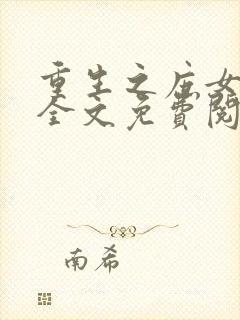 重生之庶女
全文免費閱
南希